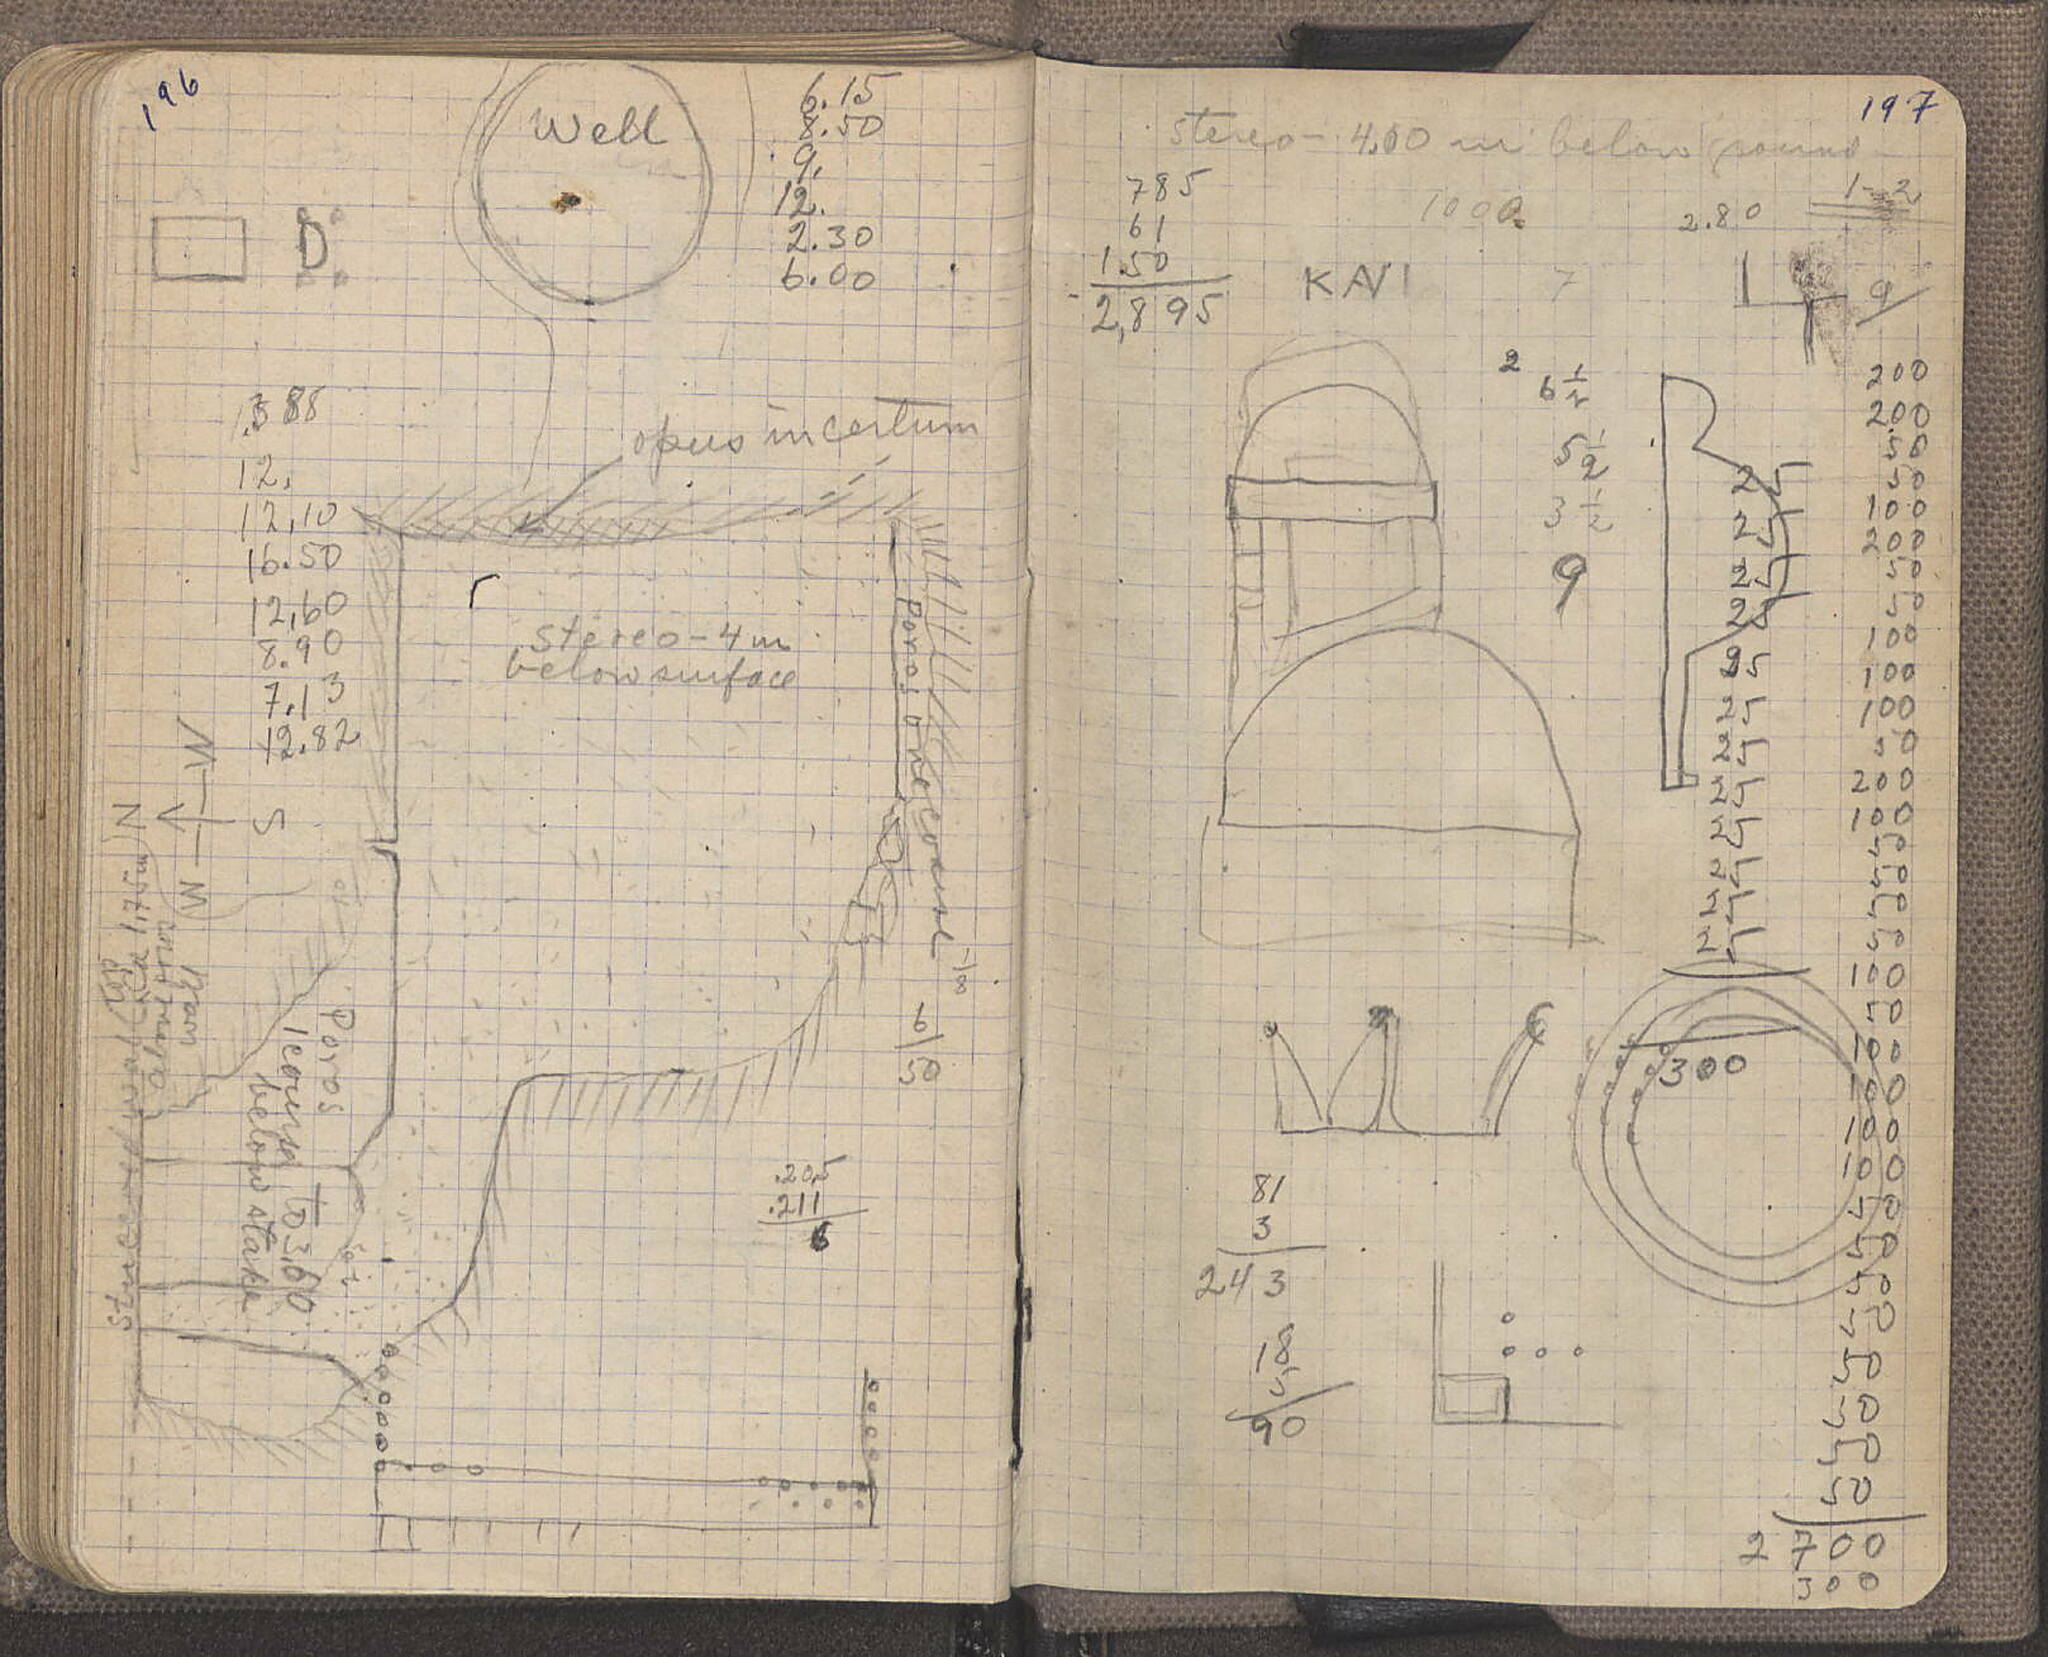 196
Well
6.15
8.50
9.
12.
2.30
6.00
D
opus incertum
12.
12,10
16.50
12,60
8.90
7,13
12.82
stereo - 4 m
below surface
Poros one course
N
W
S
Poros
1 course to 3,60
below stake
wall
6
50
.205
.211
6
197
stereo - 4.00 m below ground
785
61
1.50
2,895
1000
2.80
1-2
KAVI
7
9
2
6 1/2
5 1/2
3 1/2
9
25
25
25
25
25
25
25
25
25
25
25
25
300
200
200
50
50
100
200
50
50
100
100
100
50
200
100
50
50
50
50
100
50
100
100
100
100
50
50
50
50
50
50
50
50
2700
300
81
3
243
18
5
90